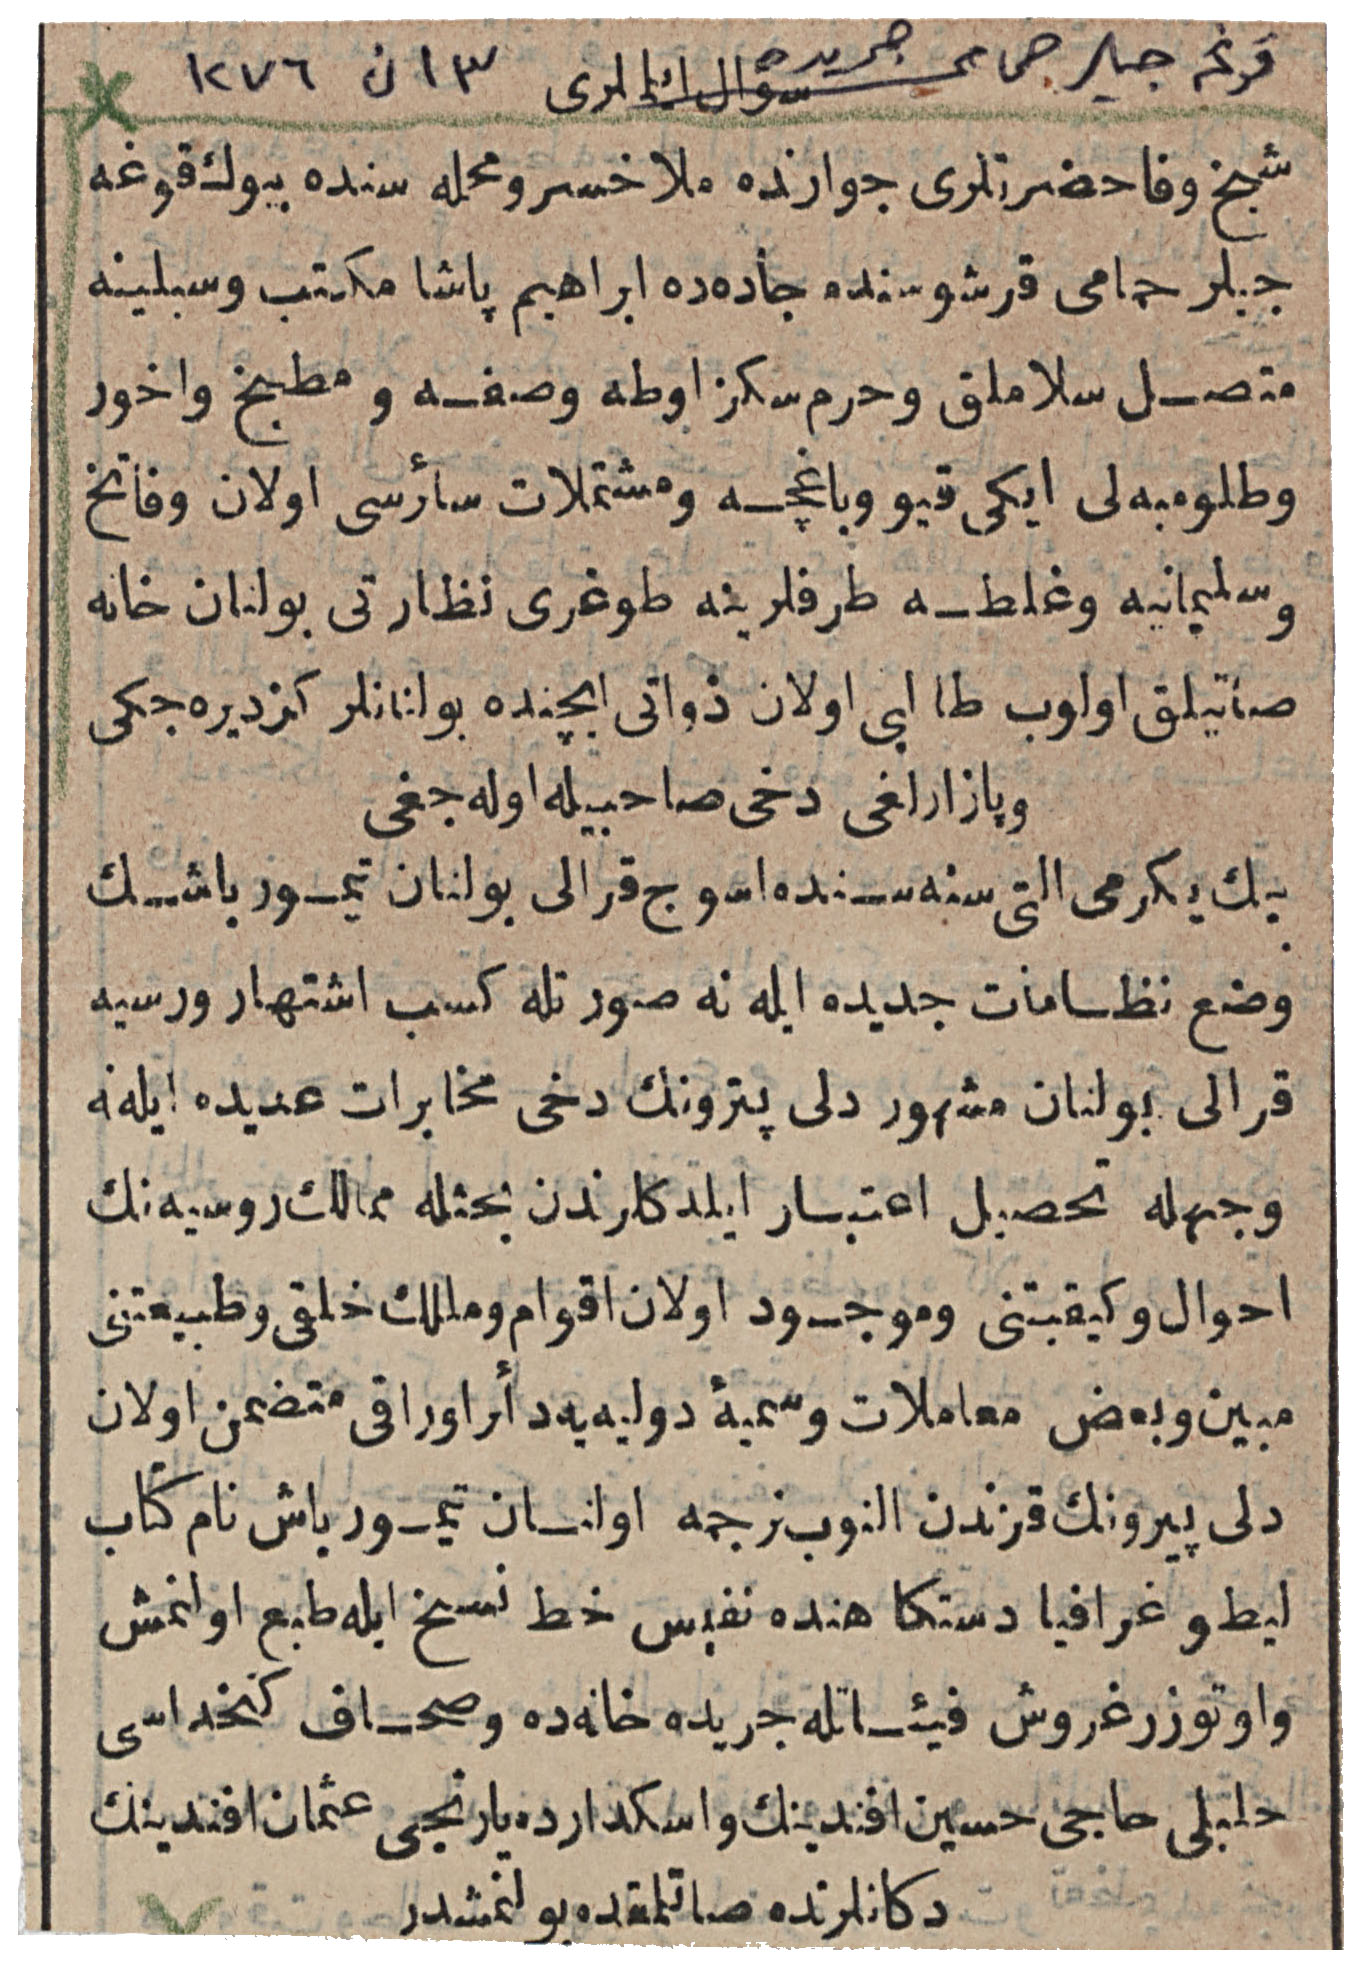 سؤال ١٣ ن ١٢٧٦
شيخ وفا حضرتلری جوارنده ملا خسرو محله سنده بيوك قوغه
جيلر حمامی قرشوسنده جاده‌ده ابراهيم پاشا مكتب وسبلينه
متصـل سلاملق وحرم سكز اوطه وصفـه و مطبخ واخور
وطلومبه‌لی ايكی قيو وباغچـه ومشتملات سائرسی اولان وفاتح
وسليمانيه وغلطـه طرفلرينه طوغری نظارتی بولنان خانه
صاتيلق اولوب طالبی اولان ذواتی ايچنده بولنانلر كزديره‌جكی
وپازارلغی دخی صاحبيله اوله‌جغی
بيك يكرمی التی سنه‌سـنده اسوج قرالی بولنان تيمـور باشـك
وضع نظـامات جديده ايله نه صورتله كسب اشتهار ورسيه
قرالی بولنان مشهور دلی پترونك دخی مخابرات عديده ايله نه
وجهله تحصيل اعتبـار ايلدكلرندن بحثله ممالك روسيه‌نك
احوال وكيفيتنی وموجـود اولان اقوام ومللك خلقی وطبيعتنی
مبين وبعض معاملات وسميهٔ دوليه‌يه دائر اوراقی متضمن اولان
دلی پيرونك قزندن النوب ترجمه اولنـان تيمـور باش نام كتاب
ليطوغرافيا دستكاهنده نفيس خط نسخ ايله طبع اولنمش
واوتوزر غروش فيئـاتله جريده خانه‌ده وصحـاف كتخداسی
حلبلی حاجی حسين افندينك واسكدارده يارنجی عثمان افندينك
دكانلرنده صاتلمقده بولنمشدر